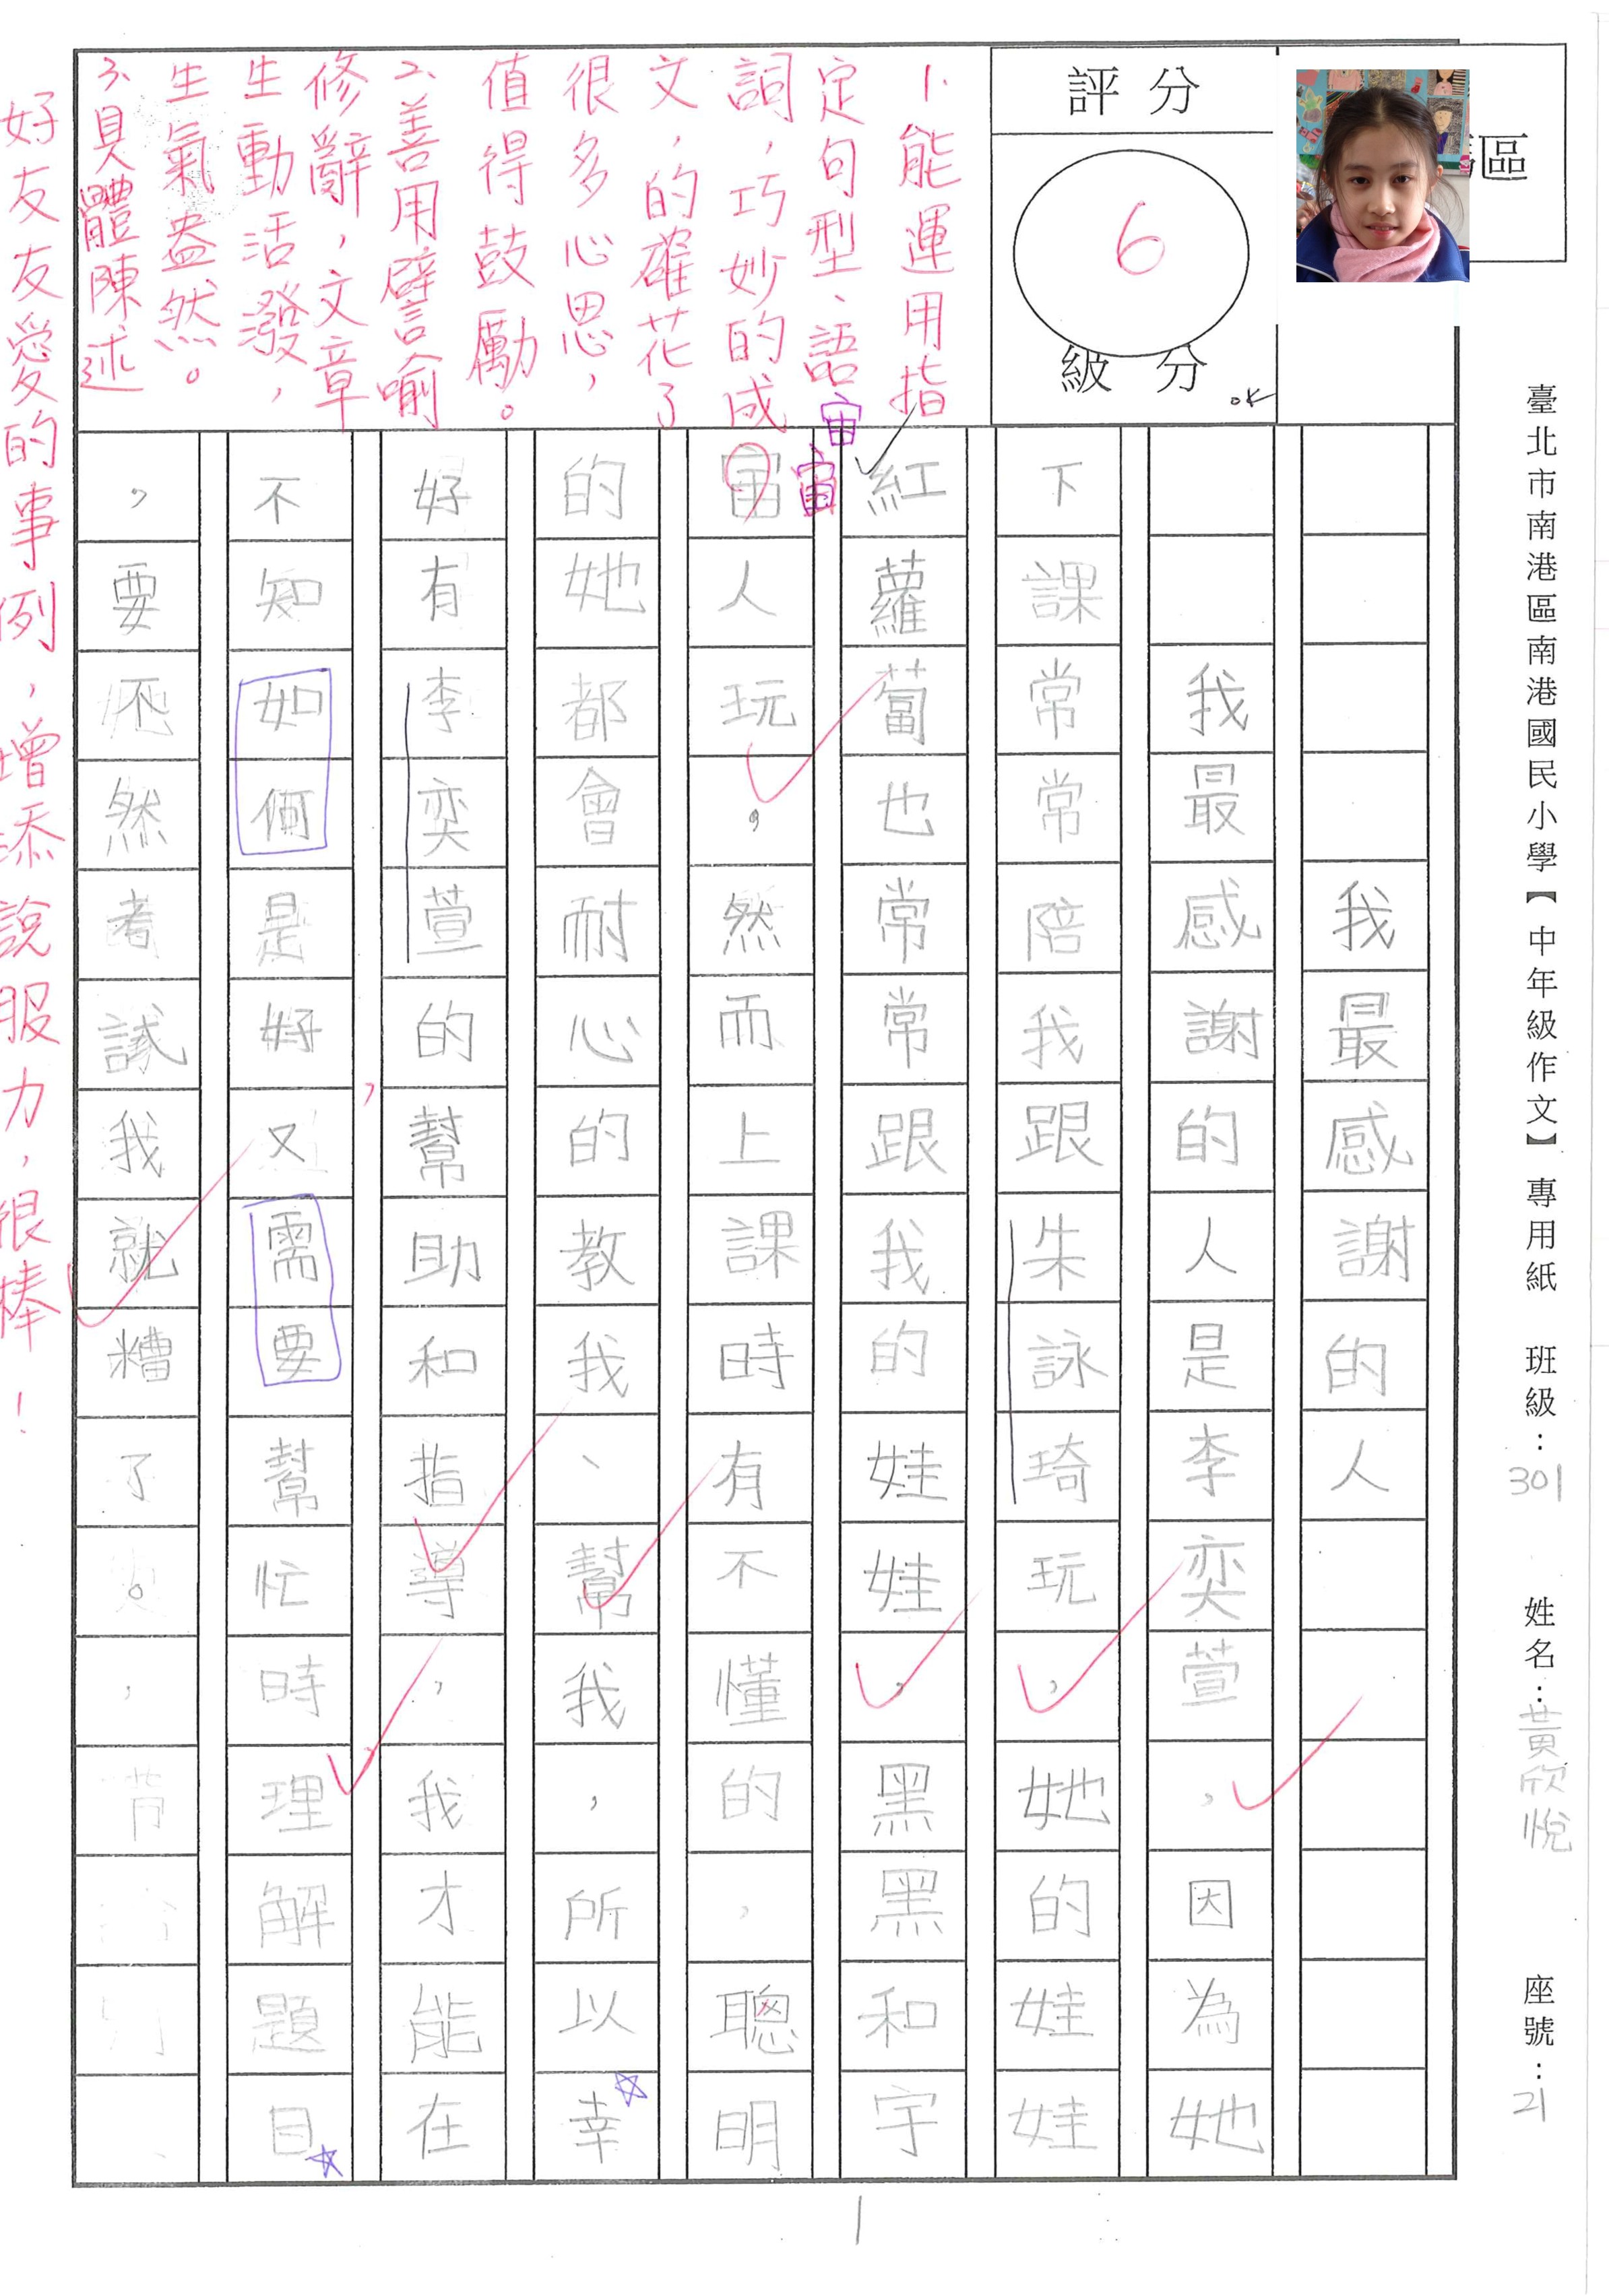 臺北市南港區南港國民小學【中年級作文】專用紙 班級：301 姓名：黃欣悅 座號：21
區
評分
6
級分
OK
1.能運用指
定句型、語
詞，巧妙的成
文，的確花了
很多心思，
值得鼓勵。
2.善用譬喻
修辭，文章
生動活潑，
生氣盎然。
3.具體陳述
好友友愛的事例，增添說服力，很棒！
我最感謝的人
我最感謝的人是李奕萱，因為她
下課常常陪我跟朱詠琦玩，她的娃娃
紅蘿蔔也常常跟我的娃娃，黑黑和宇
宙
宙
宙人玩。然而上課時有不懂的，聰明
的她都會耐心的教我、幫我，所以幸
好有李奕萱的幫助和指導，我才能在
，
不知如何是好又需要幫忙時理解題目
，要不然考試我就糟了。
1